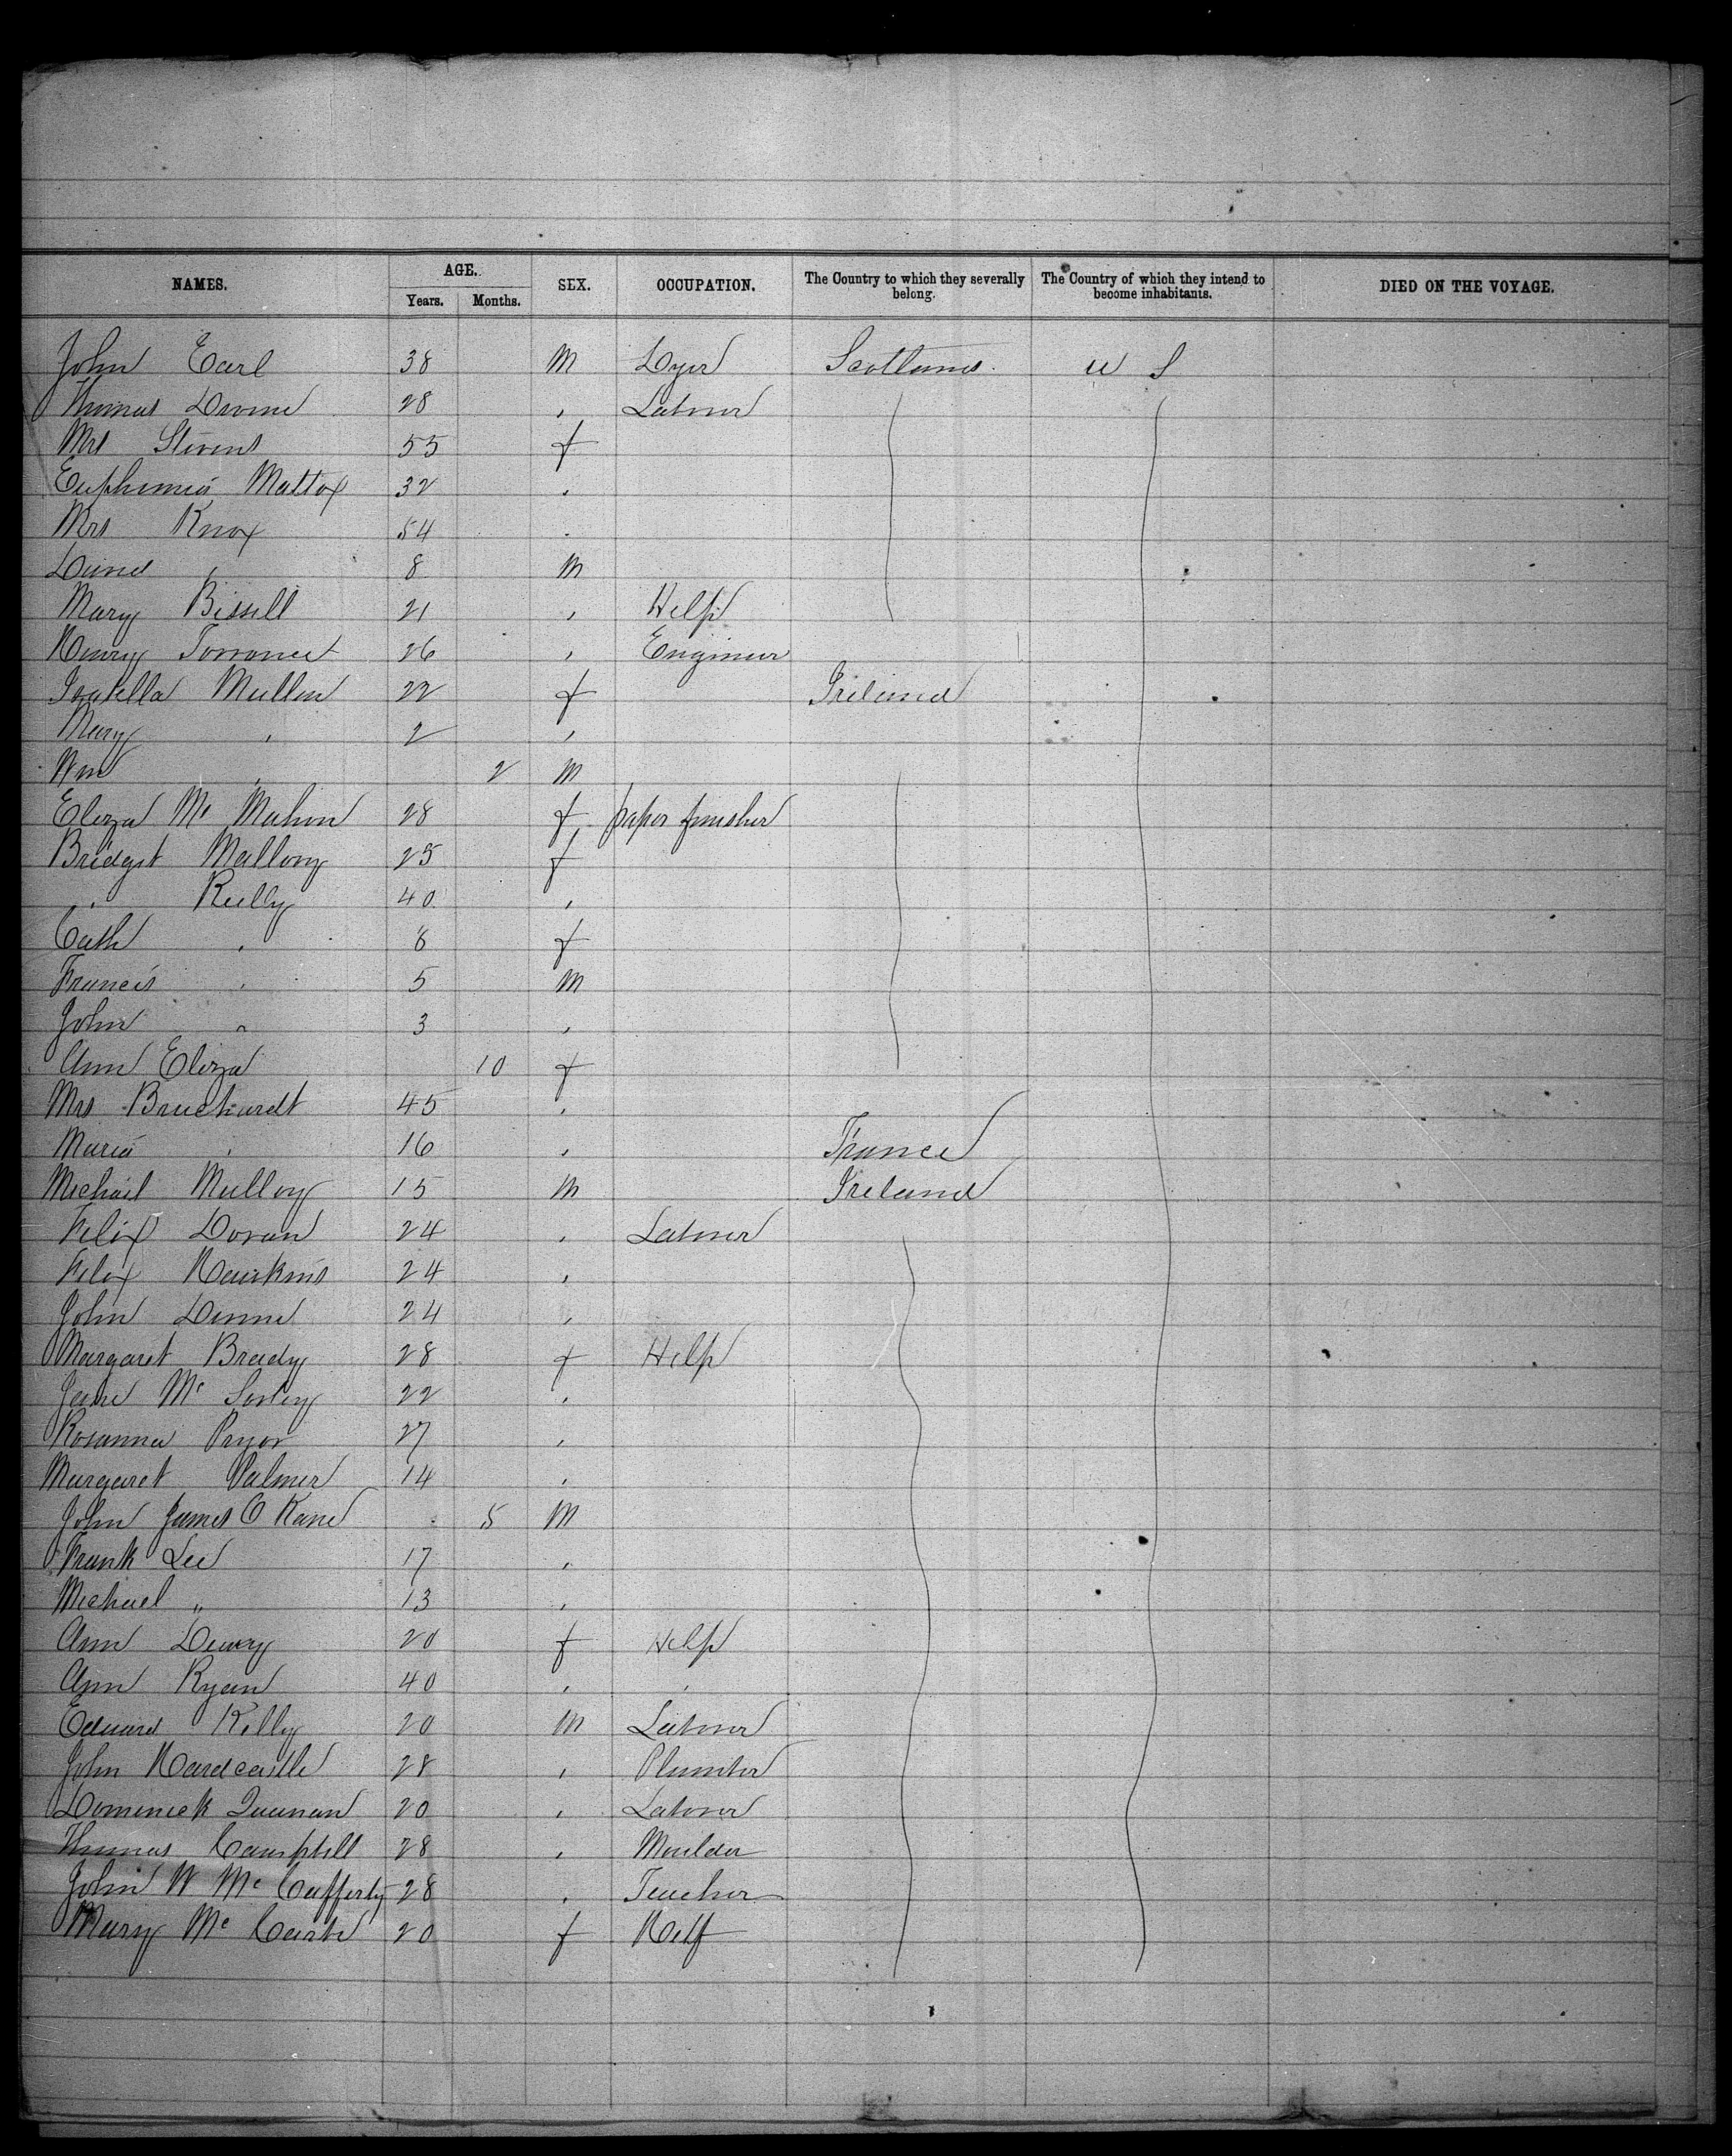 NAMES. AGE. Years. Months. SEX. OCCUPATION. The Country to which they severally belong. The Country of which they intend to become inhabitants. DIED ON THE VOYAGE.
John Earl 38 M Dyer Scotland U S
Thomas 28 , Laborer
Mrs Stevens 55 f
Euphemia Mattox 32 ,
Mrs Knox 54 .
David , 8 M
Mary Bissell 21 , Help
Henry Torrance 26 , Engineer
Isabella Mullen 22 f Ireland
Mary , 2 ,
Wm , 2 M
Eliza Mc Mahon 28 f paper finisher
Bridget Mallory 25 f
, Reilly 40 ,
Cath , 6 f
Francis , 5 M
John " 3 ,
Ann Eliza 10 f
Mrs Bruchardt 45 ,
Maria , 16 , France
Michael Mulloy 15 M Ireland
Felix Doran 24 , Laborer
Felix Hawkins 24 ,
John 24 ,
Margaret Brady 28 f Help
Jane Mc Sorley 22 ,
Rosanna Pryor 27 ,
Margaret Palmer 14 ,
John James O Kane 5 M
Frank Lee 17 ,
Michael " 13 ,
Ann 20 f Help
Ann Ryan 40 , ,
Edward Kelly 20 M Laborer
John Hardcastle 28 , Plumber
Dominick 20 , Laborer
Thomas Campbell 28 , Moulder
John W Mc Cafferty 28 , Teacher
Mary Mc 20 f Help